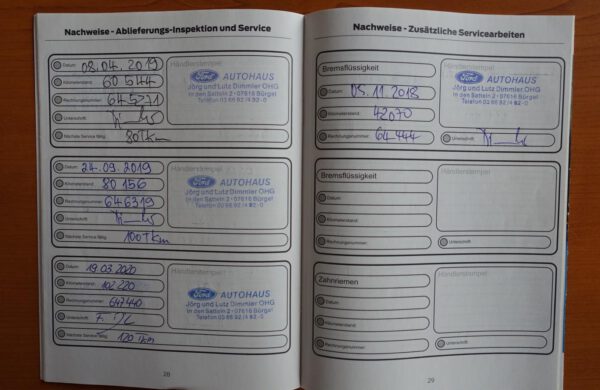 Nachweise - Ablieferungs-Inspektion und Service
Datum: 08.04.2019
Kilometerstand: 60544
Rechnungsnummer: 645271
Unterschrift:
Nächste Service fällig: 80Tkm
Händlerstempel
Ford AUTOHAUS
Jörg und Lutz Dimmler OHG
In den Satteln 2 · 07616 Bürgel
Telefon 03 66 92 / 4 92-0
Datum: 24.09.2019
Kilometerstand: 80156
Rechnungsnummer: 646319
Unterschrift:
Nächste Service fällig: 100Tkm
Händlerstempel
Ford AUTOHAUS
Jörg und Lutz Dimmler OHG
In den Satteln 2 · 07616 Bürgel
Telefon 03 66 92 / 4 92-0
Datum: 19.03.2020
Kilometerstand: 102220
Rechnungsnummer: 647440
Unterschrift:
Nächste Service fällig: 120 Tkm
Händlerstempel
Ford AUTOHAUS
Jörg und Lutz Dimmler OHG
In den Satteln 2 · 07616 Bürgel
Telefon 03 66 92 / 4 92-0
28
Nachweise - Zusätzliche Servicearbeiten
Bremsflüssigkeit
Datum: 05.11.2018
Kilometerstand: 42070
Rechnungsnummer: 64444
Händlerstempel
Ford AUTOHAUS
Jörg und Lutz Dimmler OHG
In den Satteln 2 · 07616 Bürgel
Telefon 03 66 92 / 4 92-0
Unterschrift:
Bremsflüssigkeit
Datum:
Kilometerstand:
Rechnungsnummer:
Händlerstempel
Unterschrift:
Zahnriemen
Datum:
Kilometerstand:
Rechnungsnummer:
Händlerstempel
Unterschrift:
29